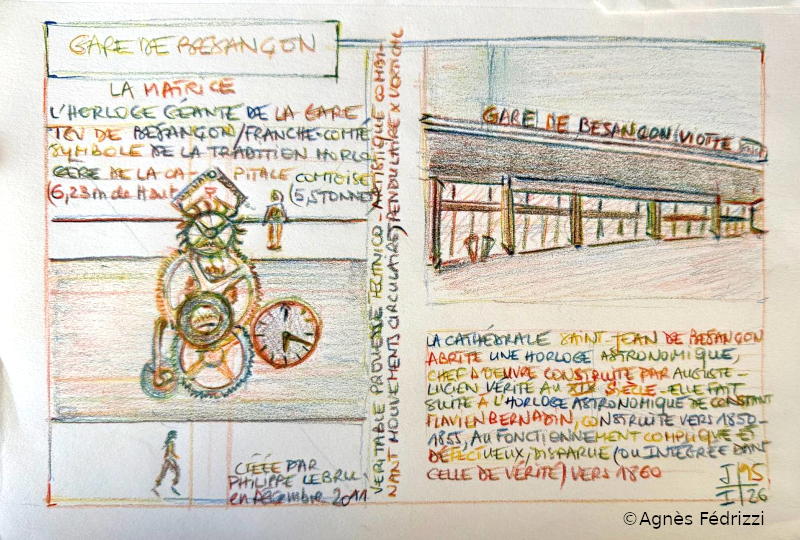 GARE DE BESANÇON
LA MATRICE
L'HORLOGE GÉANTE DE LA GARE
TGV DE BESANÇON/FRANCHE-COMTÉ
SYMBOLE DE LA TRADITION HORLO-
GÈRE DE LA CA- PITALE COMTOISE
(6,23m de Haut (5,5TONNES
CRÉÉE PAR
PHILIPPE LEBRU,
en décembre 2011
VERITABLE PROUESSE TECHNICO-ARTISTIQUE COMBI-
NANT MOUVEMENTS CIRCULAIRES, PENDULAIRE X VERTICAL
GARE DE BESANCON VIOTTE
LA CATHÉDRALE SAINT-JEAN DE BESANÇON
ABRITE UNE HORLOGE ASTRONOMIQUE,
CHEF D'OEUVRE CONSTRUITE PAR AUGUSTE-
LUCIEN VERITÉ AU XIXe SIECLE - ELLE FAIT
SUITE À L'HORLOGE ASTRONOMIQUE DE CONSTANT
FLAVIEN BERNADIN, CONSTRUITE VERS 1850-
1855, AU FONCTIONNEMENT COMPLIQUÉ ET
DÉFECTUEUX, DISPARUE (OU INTÉGRÉE DANS
CELLE DE VÉRITÉ) VERS 1860
J 95
26
©Agnès Fédrizzi